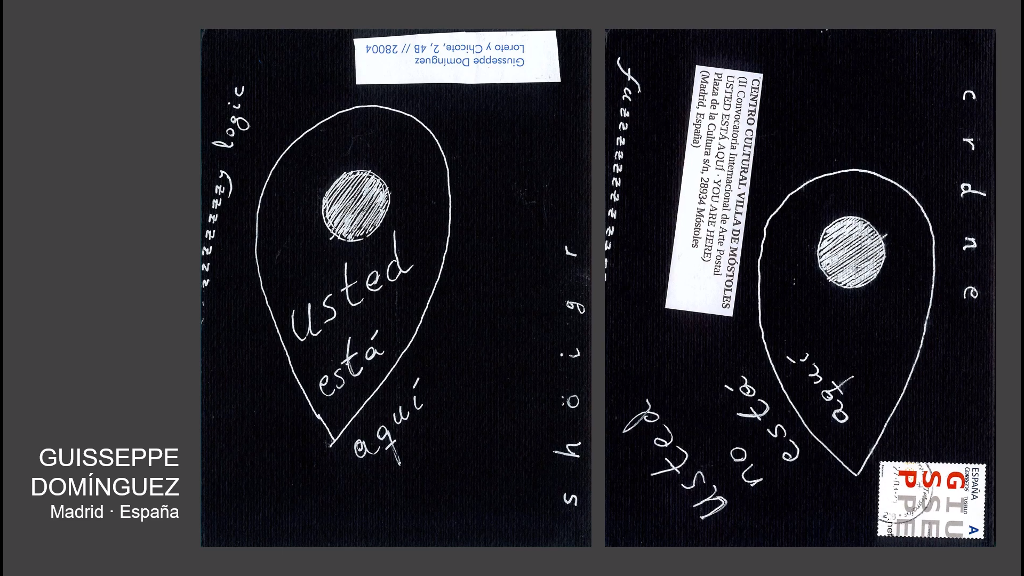 GUISSEPPE
DOMÍNGUEZ
Madrid · España
Giusseppe Domínguez
Loreto y Chicote, 2, 4B // 28004
zzzzzzzy logic
usted
está
aquí
shöigr
fuzzzzzzzzz
CENTRO CULTURAL VILLA DE MÓSTOLES
(II Convocatoria Internacional de Arte Postal
USTED ESTÁ AQUÍ - YOU ARE HERE)
Plaza de la Cultura s/n, 28934 Móstoles
(Madrid, España)
crdne
aquí
usted
no
está
ESPAÑA
A
GIU
SSE
PPE